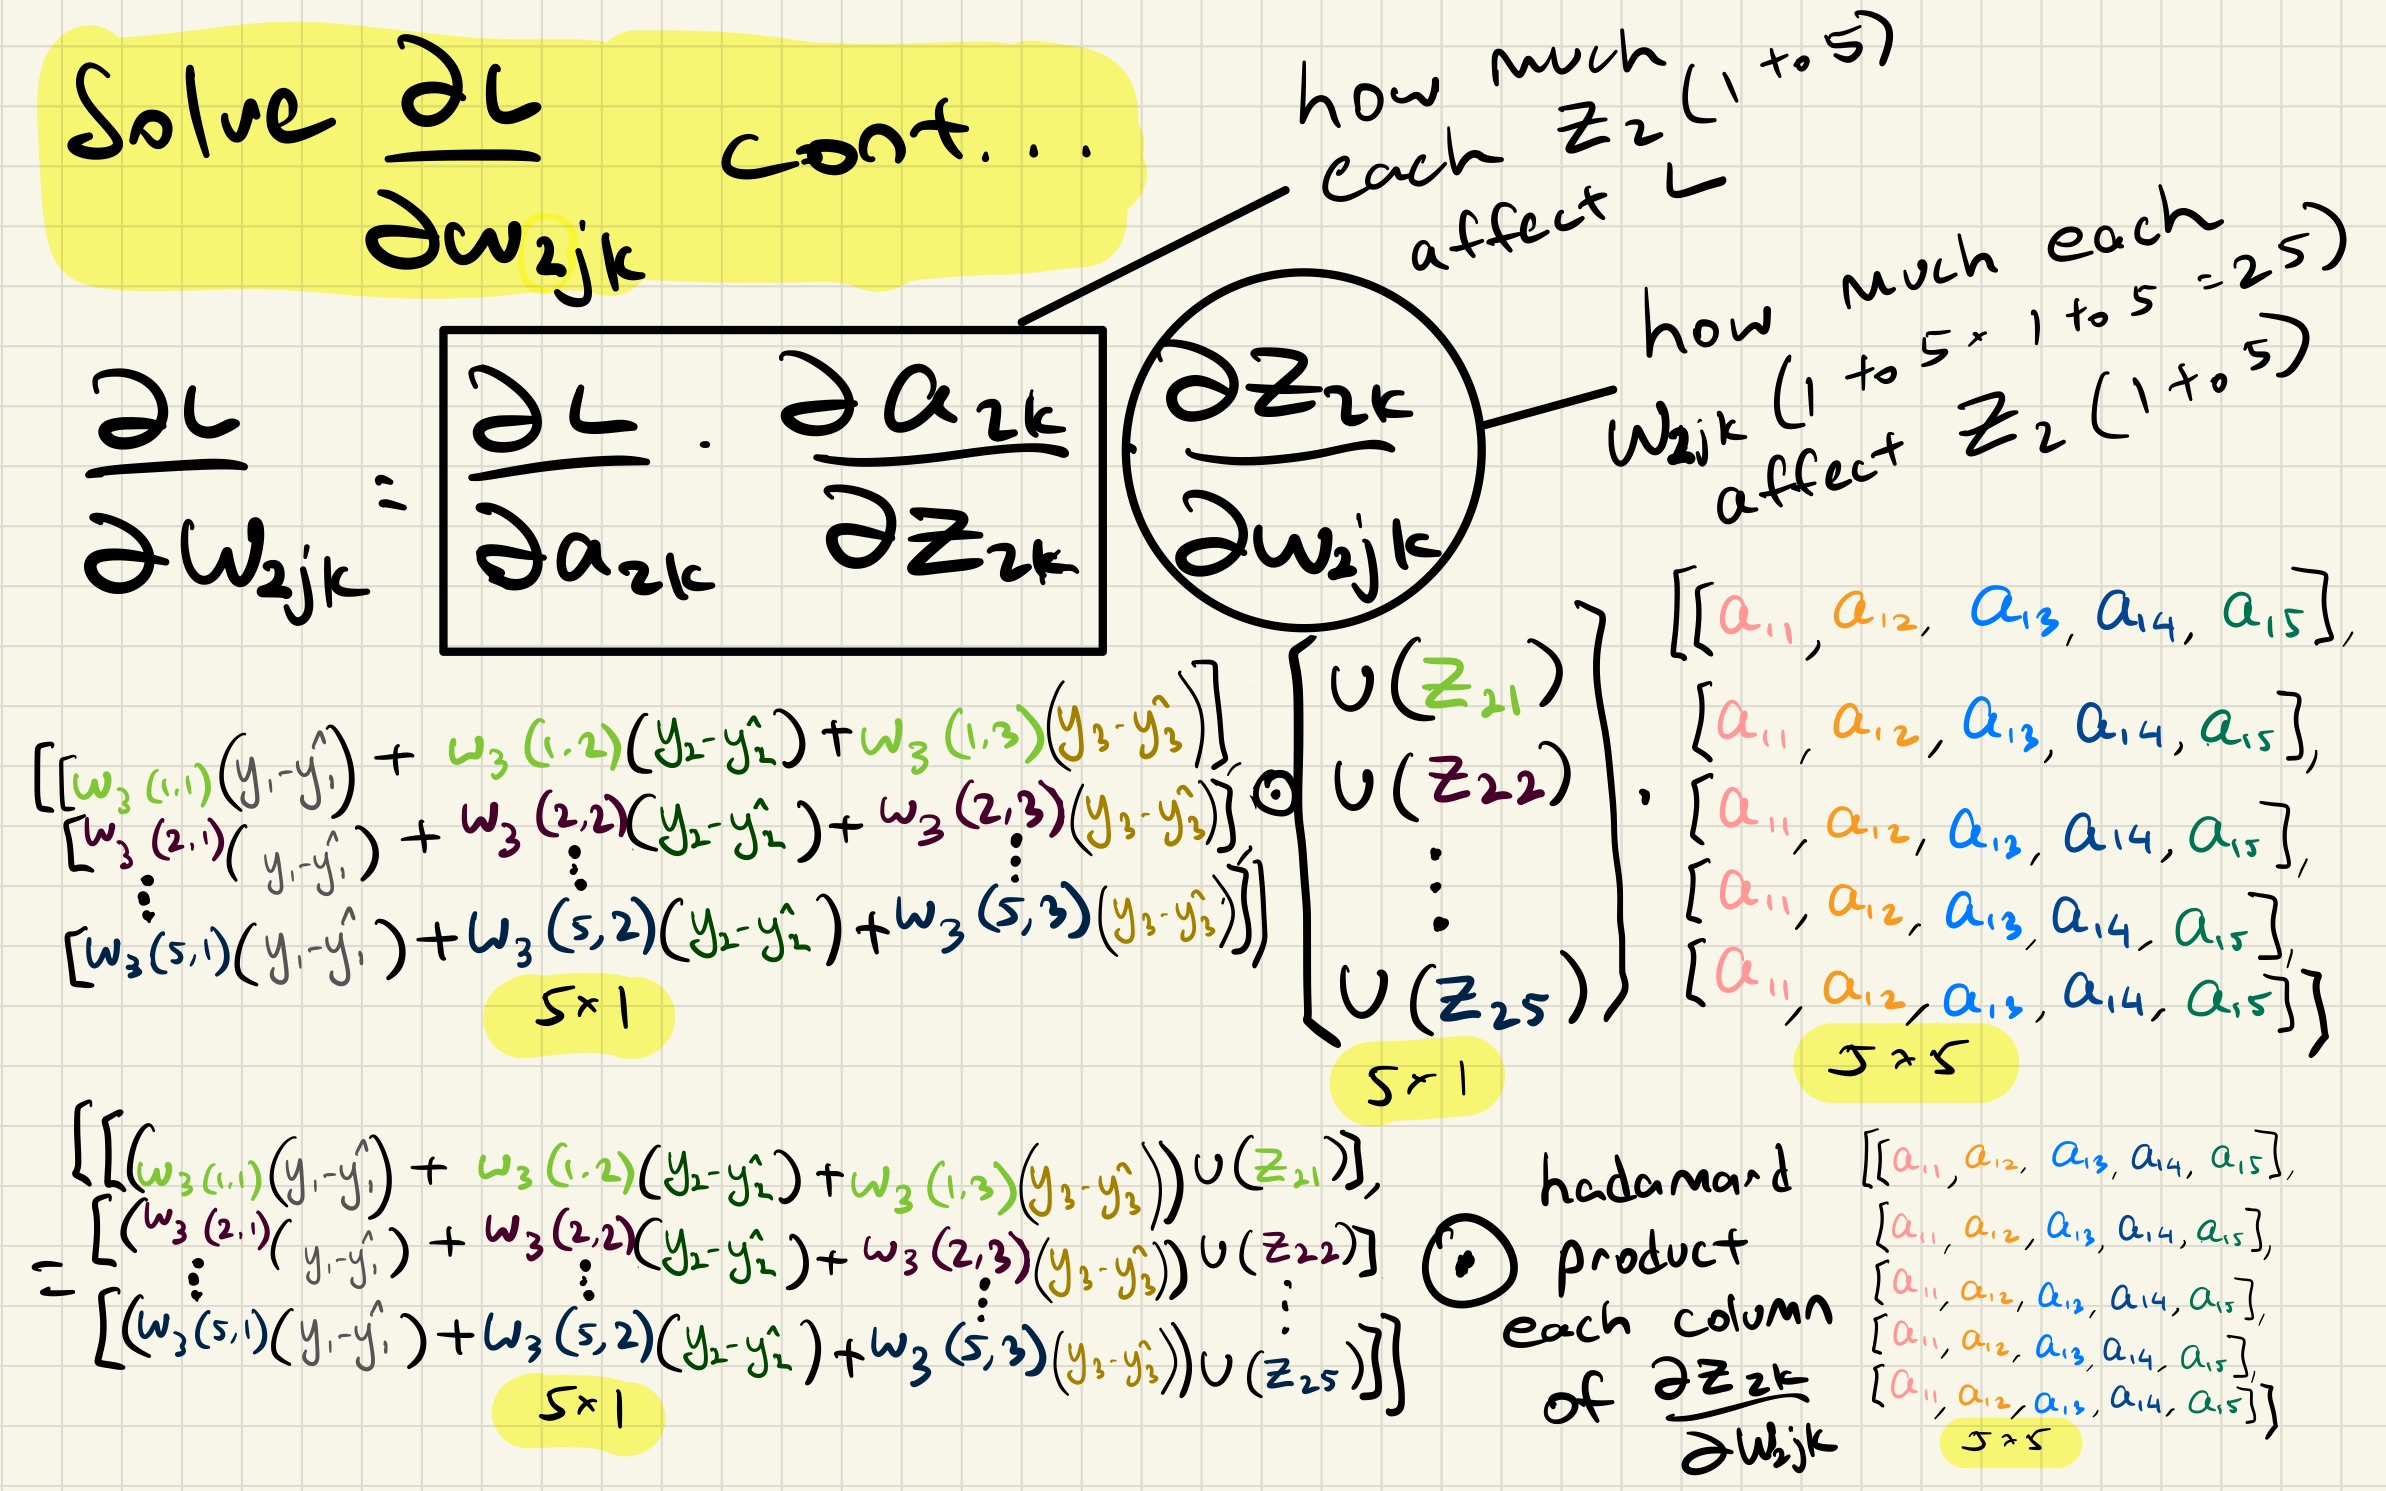 Solve ∂L/∂w₂jk cont...
how much each Z₂ (1 to 5) affect L
how much each w₂jk (1 to 5 × 1 to 5 = 25) affect Z₂ (1 to 5)
∂L/∂w₂jk = ∂L/∂a₂k · ∂a₂k/∂Z₂k · ∂Z₂k/∂w₂jk
[[w₃(1,1)(y₁-ŷ₁) + w₃(1,2)(y₂-ŷ₂) + w₃(1,3)(y₃-ŷ₃)],
[w₃(2,1)(y₁-ŷ₁) + w₃(2,2)(y₂-ŷ₂) + w₃(2,3)(y₃-ŷ₃)],
⋮ ⋮ ⋮
[w₃(5,1)(y₁-ŷ₁) + w₃(5,2)(y₂-ŷ₂) + w₃(5,3)(y₃-ŷ₃)]]
5×1
⊙
[U(Z₂₁)
U(Z₂₂)
⋮
U(Z₂₅)]
5×1
·
[[a₁₁, a₁₂, a₁₃, a₁₄, a₁₅],
[a₁₁, a₁₂, a₁₃, a₁₄, a₁₅],
[a₁₁, a₁₂, a₁₃, a₁₄, a₁₅],
[a₁₁, a₁₂, a₁₃, a₁₄, a₁₅],
[a₁₁, a₁₂, a₁₃, a₁₄, a₁₅]]
5×5
= [[(w₃(1,1)(y₁-ŷ₁) + w₃(1,2)(y₂-ŷ₂) + w₃(1,3)(y₃-ŷ₃))U(Z₂₁)],
[(w₃(2,1)(y₁-ŷ₁) + w₃(2,2)(y₂-ŷ₂) + w₃(2,3)(y₃-ŷ₃))U(Z₂₂)]
⋮ ⋮ ⋮ ⋮
[(w₃(5,1)(y₁-ŷ₁) + w₃(5,2)(y₂-ŷ₂) + w₃(5,3)(y₃-ŷ₃))U(Z₂₅)]]
5×1
⊙
hadamard
product
each column
of ∂Z₂k/∂w₂jk
[[a₁₁, a₁₂, a₁₃, a₁₄, a₁₅],
[a₁₁, a₁₂, a₁₃, a₁₄, a₁₅],
[a₁₁, a₁₂, a₁₃, a₁₄, a₁₅],
[a₁₁, a₁₂, a₁₃, a₁₄, a₁₅],
[a₁₁, a₁₂, a₁₃, a₁₄, a₁₅]]
5×5